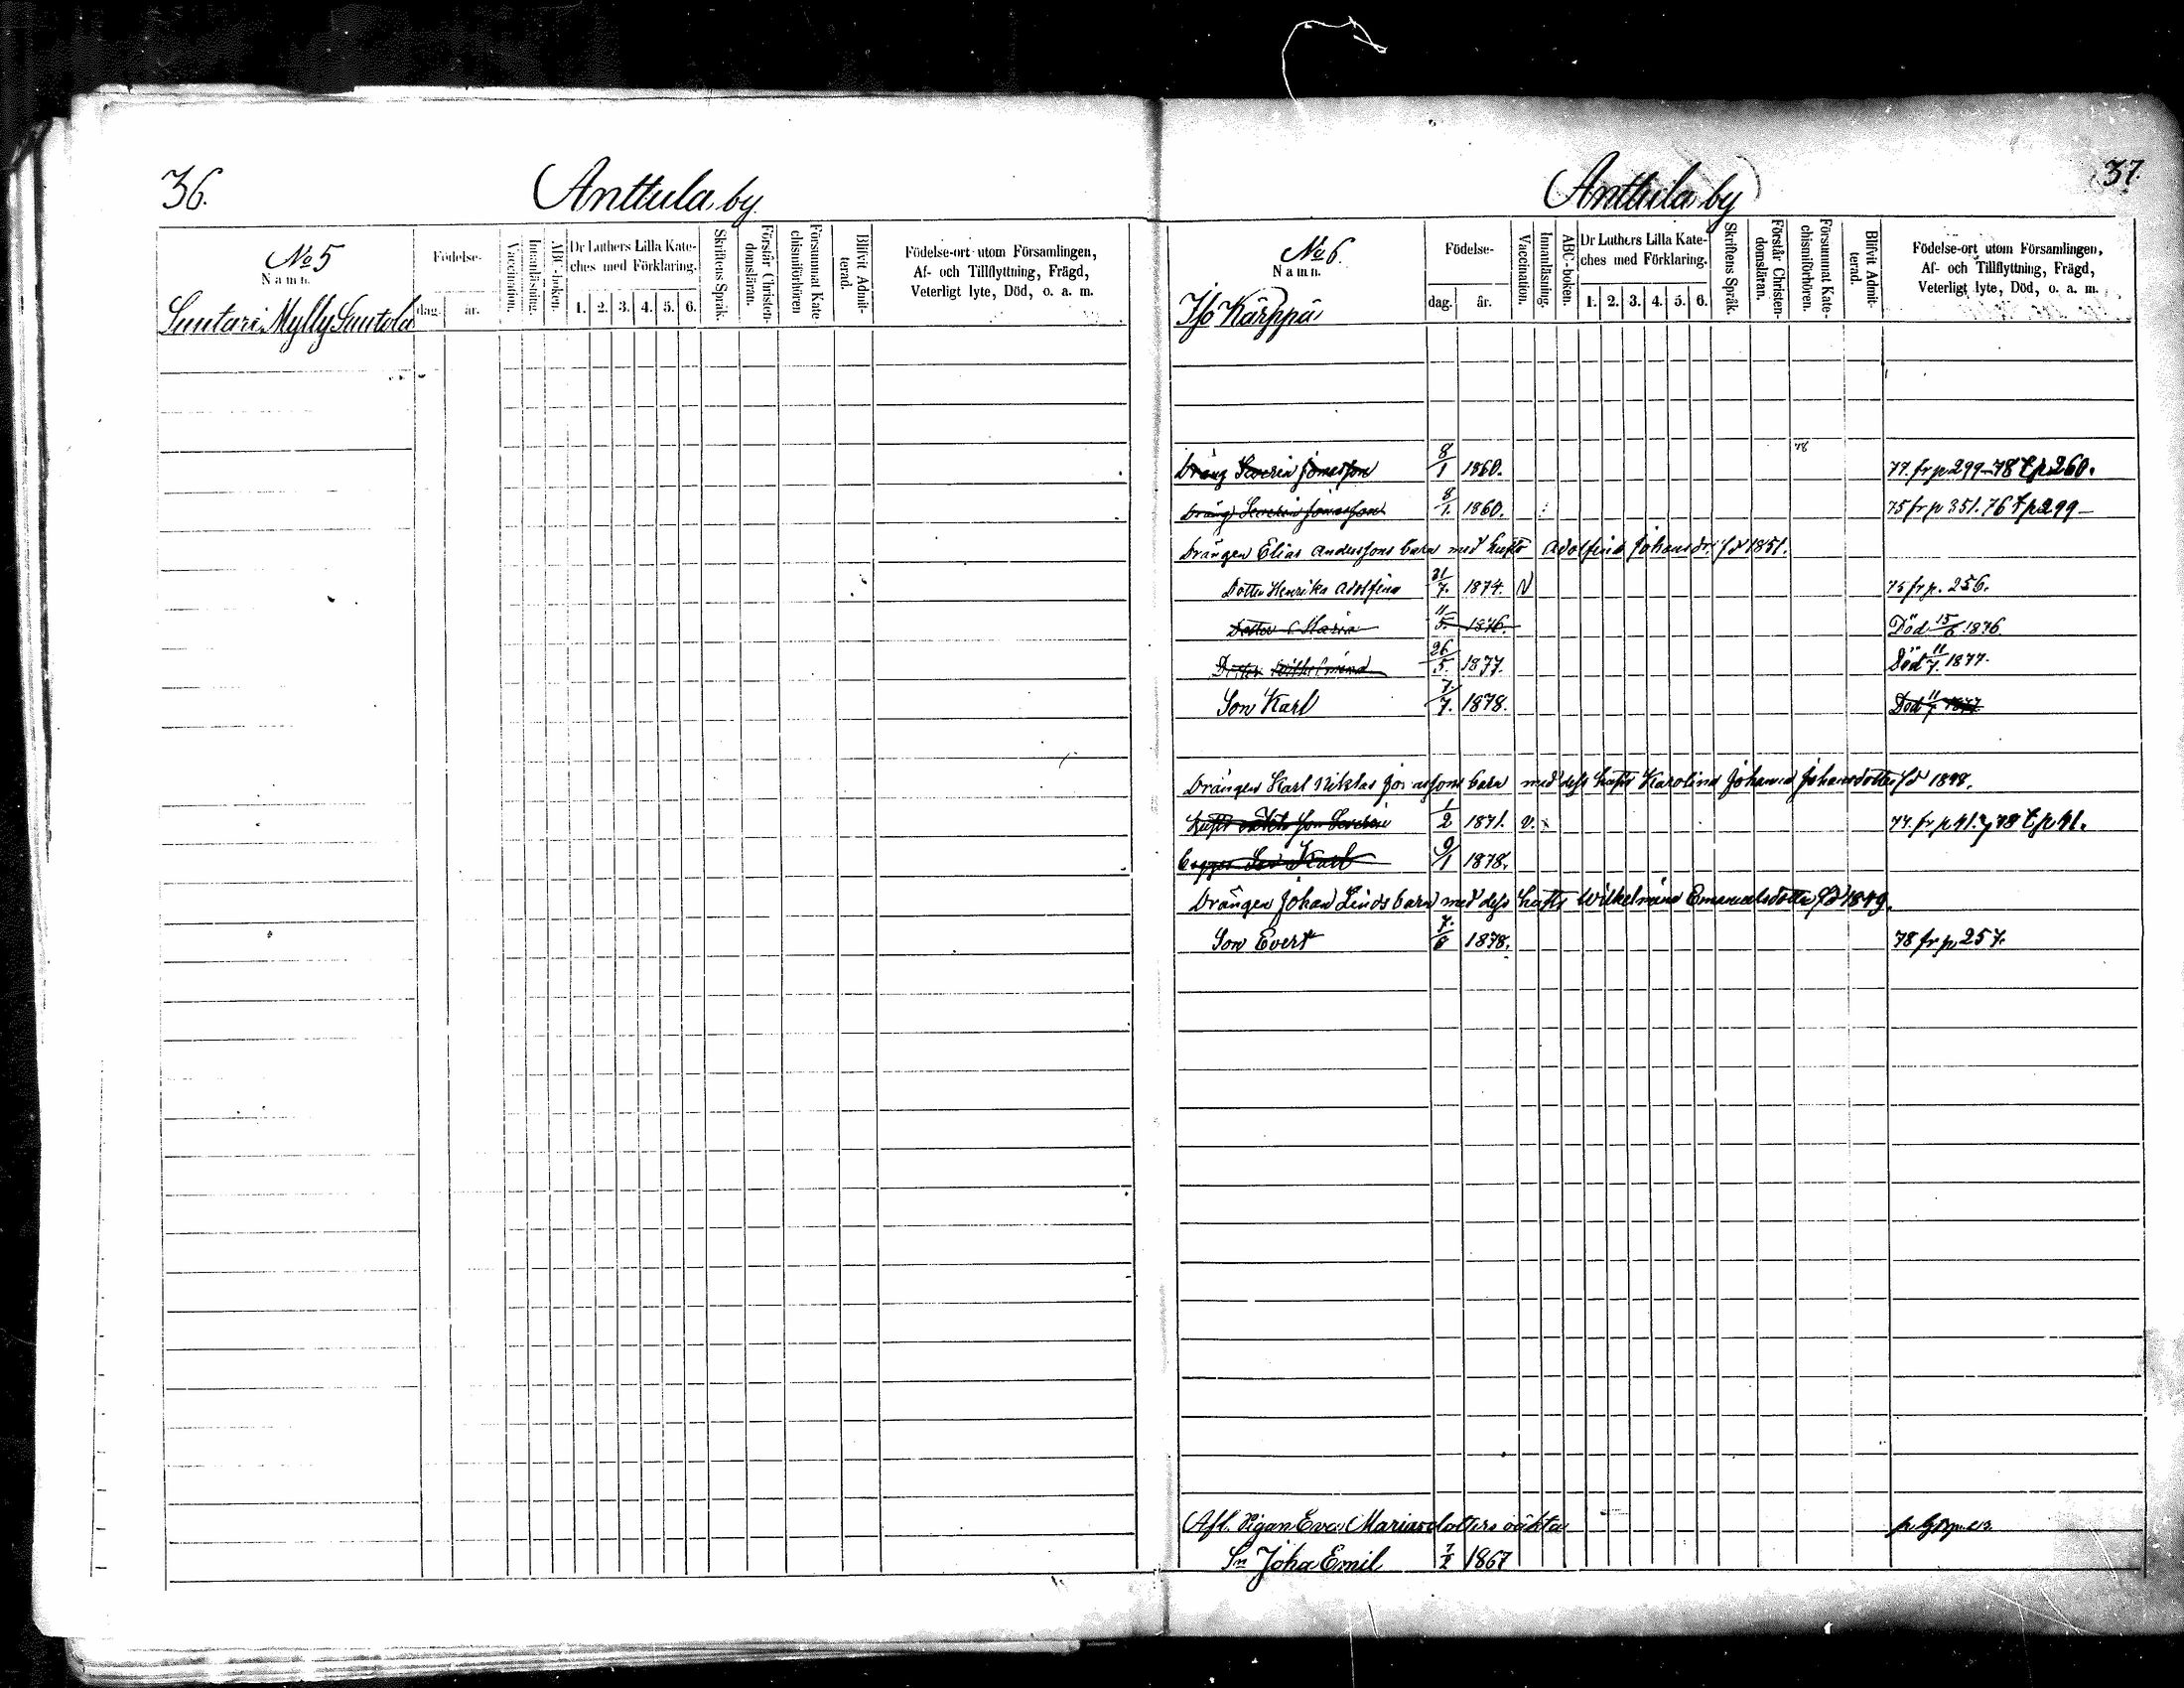 36.
Anttula by
No 5
Namn.
Födelse-
dag. år.
Vaccination.
Innanläsning.
ABC-boken.
Dr Luthers Lilla Kate-
ches med Förklaring.
1. 2. 3. 4. 5. 6.
Skriftens Språk.
Förstår Christen-
domsläran.
Försummat Kate-
chismiförhören
Blifvit Admit-
terad.
Födelse-ort utom Församlingen,
Af- och Tillflyttning, Frägd,
Veterligt lyte, Död, o. a. m.
Suutari Mylly Suutola
37.
Anttula by
No 6.
Namn.
Födelse-
dag. år.
Vaccination.
Innanläsning.
ABC-boken.
Dr Luthers Lilla Kate-
ches med Förklaring.
1. 2. 3. 4. 5. 6.
Skriftens Språk.
Förstår Christen-
domsläran.
Försummat Kate-
chismiförhören.
Blifvit Admit-
terad.
Födelse-ort utom Församlingen,
Af- och Tillflyttning, Frägd,
Veterligt lyte, Död, o. a. m.
Iso Kärppä
78
Dräng Severin Jonasson 8/1 1860. 77. fr p 299–78 t p 260.
Dräng Severin Jonasson 8/1. 1860. 75 fr p 351. 76 t p 299–
Drängen Elias Anderssons barn med hustr Adolfina Johansdr fd 1851.
Dotter Henrika Adolfina 21/7. 1874. V 75 fr p. 256.
Dotter Maria 11/5. 1876. Död 15/6 1876.
Dotter Wilhelmina 26/5. 1877. Död 11/7. 1877.
Son Karl 7/7. 1878. Död 11/7 1877
Drängen Karl Niklas Jonassons barn med dess hustr Karolina Johanna Johansdotter fd 1848.
Hustr oäkta son Severin 1/2 1871. v. 77. fr p 41. 78 t p 41.
Karl 9/1 1878.
Drängen Johan Linds barn med dess hustr Wilhelmina Emanuelsdotter fd 1849.
Son Evert 7/8 1878. 78 fr p 257.
Afl. Pigan Eva Mariasdotters oäkta
Sn Joha Emil 7/2 1867